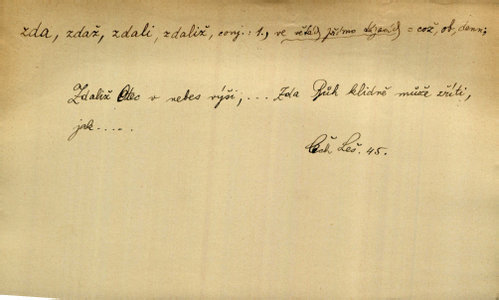 zda, zdaž, zdali, zdaliž, conj.: 1., ve větách přímo tázacích = což, ob, denn;
Zdaliž Otec v nebes výši, ... Zda Bůh klidně může zříti,
jak.....
Čch Leš. 45.